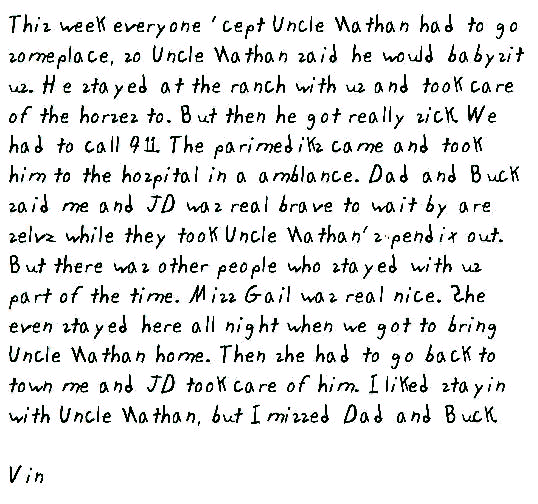 This week everyone 'cept Uncle Nathan had to go
someplace, so Uncle Nathan said he would babysit
us. He stayed at the ranch with us and took care
of the horses to. But then he got really sick. We
had to call 911. The parimediks came and took
him to the hospital in a amblance. Dad and Buck
said me and JD was real brave to wait by are
selvs while they took Uncle Nathan's pendix out.
But there was other people who stayed with us
part of the time. Miss Gail was real nice. She
even stayed here all night when we got to bring
Uncle Nathan home. Then she had to go back to
town me and JD took care of him. I liked stayin
with Uncle Nathan, but I missed Dad and Buck.
Vin